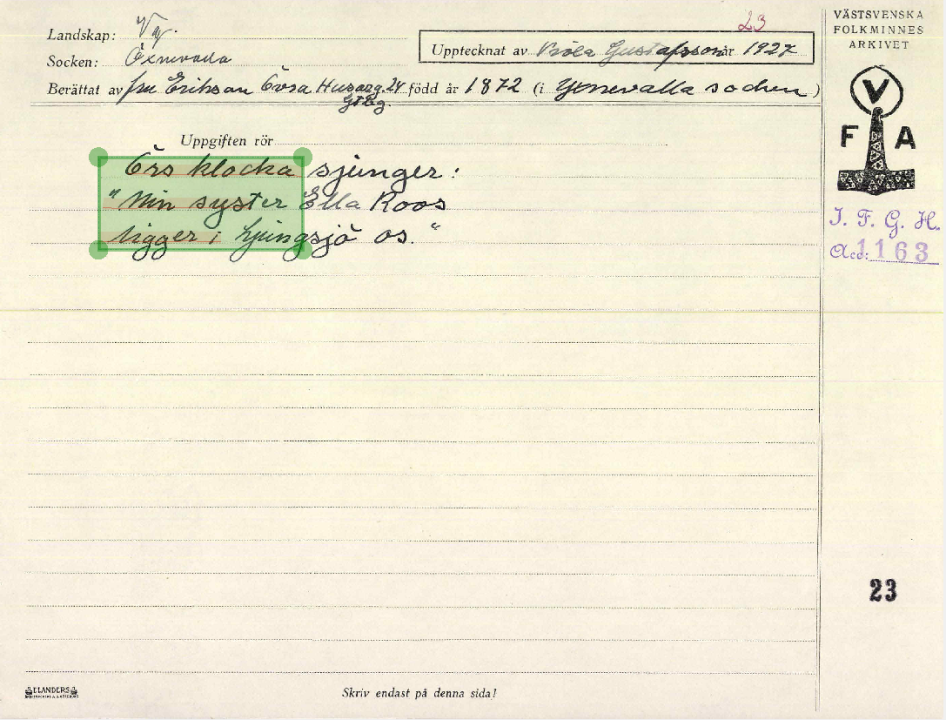 23
VÄSTSVENSKA
FOLKMINNES
ARKIVET
Landskap: Vg.
Upptecknat av Viola Gustafsson år 1927
Socken:
Berättat av fru Erikson Övra Husarg. 24 född år 1872 (i socken)
Gtbg
V
F A
Uppgiften rör
Örs klocka sjunger:
"Min syster Ella Roos
ligger i Ljungsjö os."
I. F. G. H.
Acc: 1163
23
ELANDERS
Skriv endast på denna sida!